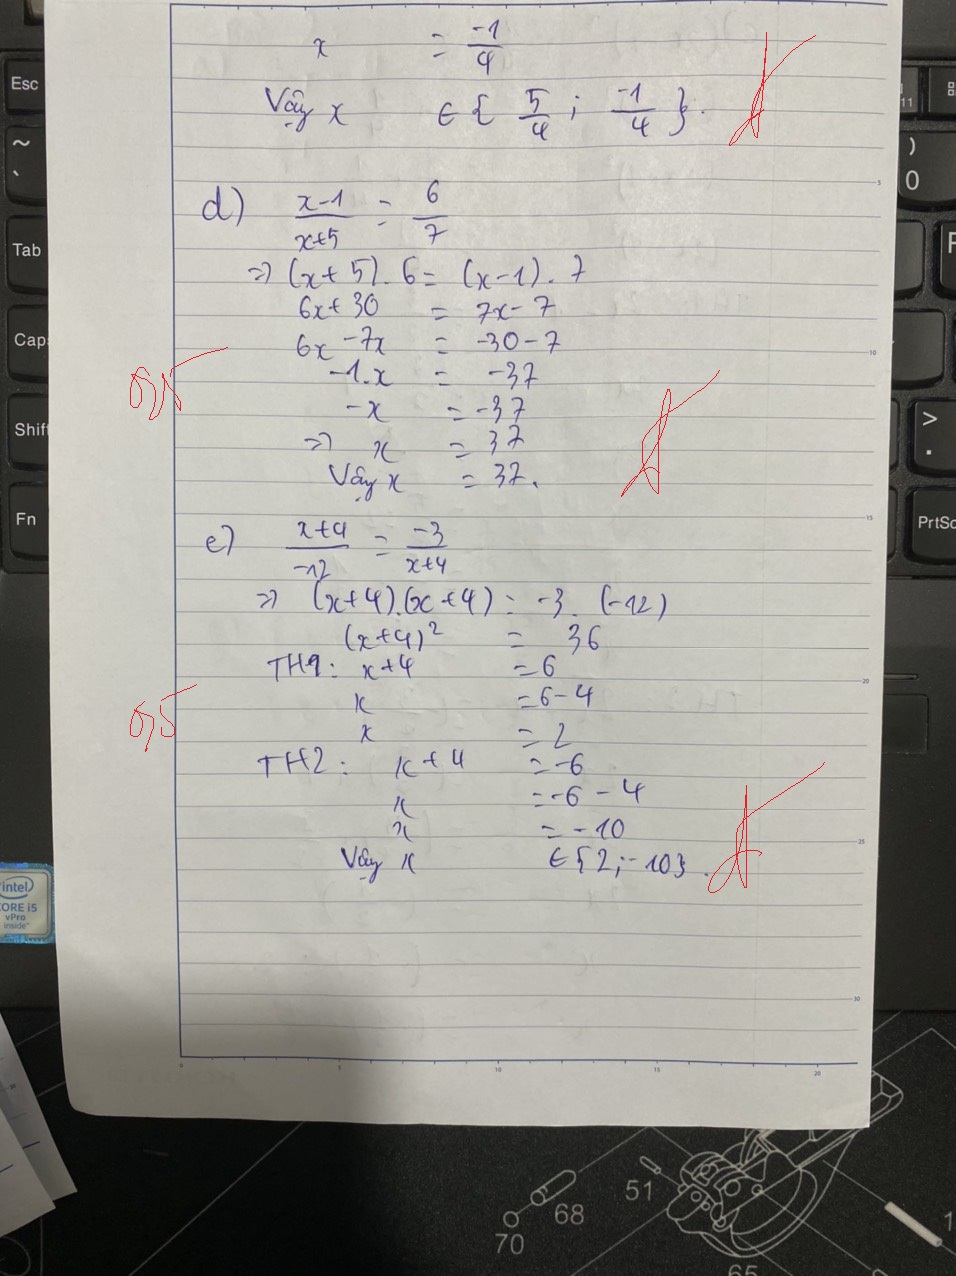 x = -1/4
Vậy x ∈ { 5/4 ; -1/4 }.
d) x-1/x+5 = 6/7
=> (x+5).6 = (x-1).7
6x+30 = 7x-7
6x-7x = -30-7
-1.x = -37
0,5
-x = -37
=> x = 37
Vậy x = 37.
e) x+4/-12 = -3/x+4
=> (x+4).(x+4) = -3.(-12)
(x+4)² = 36
TH1: x+4 = 6
x = 6-4
0,5
x = 2
TH2: x+4 = -6
x = -6-4
x = -10
Vậy x ∈ {2;-10}.
Esc
~
`
Tab
Cap
Shif
Fn
11
)
0
>
.
PrtSc
intel
CORE i5
vPro
inside™
5
10
15
20
25
30
0
5
10
15
20
51
68
70
65